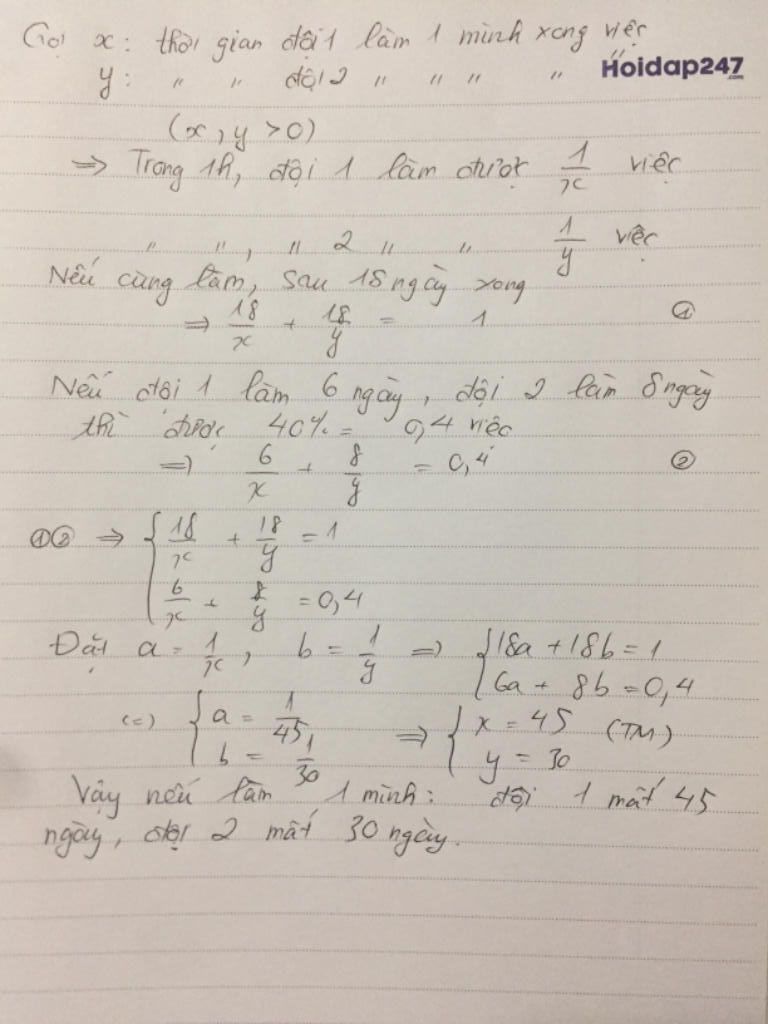 Gọi x: thời gian đội 1 làm 1 mình xong việc
y: " " đội 2 " " " " "
Hoidap247.com
(x, y > 0)
=> Trong 1h, đội 1 làm được 1/x việc
" ", " 2 " " 1/y việc
Nếu cùng làm, sau 18 ngày xong
=> 18/x + 18/y = 1 ①
Nếu đội 1 làm 6 ngày, đội 2 làm 8 ngày
thì được 40% = 0,4 việc
=> 6/x + 8/y = 0,4 ②
①② => { 18/x + 18/y = 1
6/x + 8/y = 0,4
Đặt a = 1/x, b = 1/y => { 18a + 18b = 1
6a + 8b = 0,4
(=) { a = 1/45 => { x = 45 (TM)
b = 1/30 y = 30
Vậy nếu làm 1 mình: đội 1 mất 45
ngày, đội 2 mất 30 ngày.